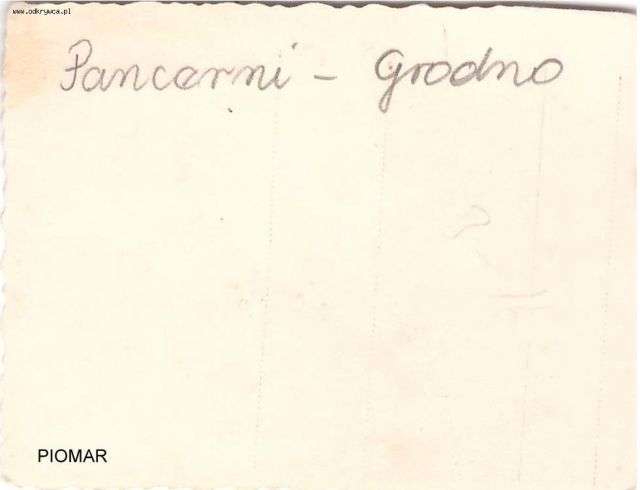 www.odkrywca.pl
Pancerni - Grodno
PIOMAR